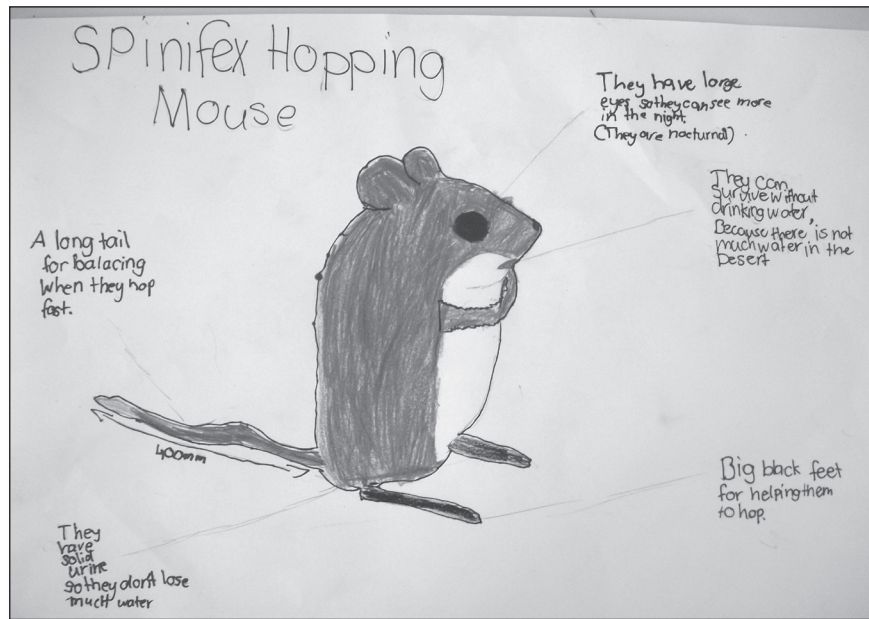 Spinifex Hopping
Mouse
They have large
eyes, so they can see more
in the night.
(They are nocturnal).
They can
survive without
drinking water,
Because there is not
much water in the
Desert
A long tail
for balacing
when they hop
fast.
400mm
Big black feet
for helping them
to hop.
They
have
solid
urine
so they don't lose
much water